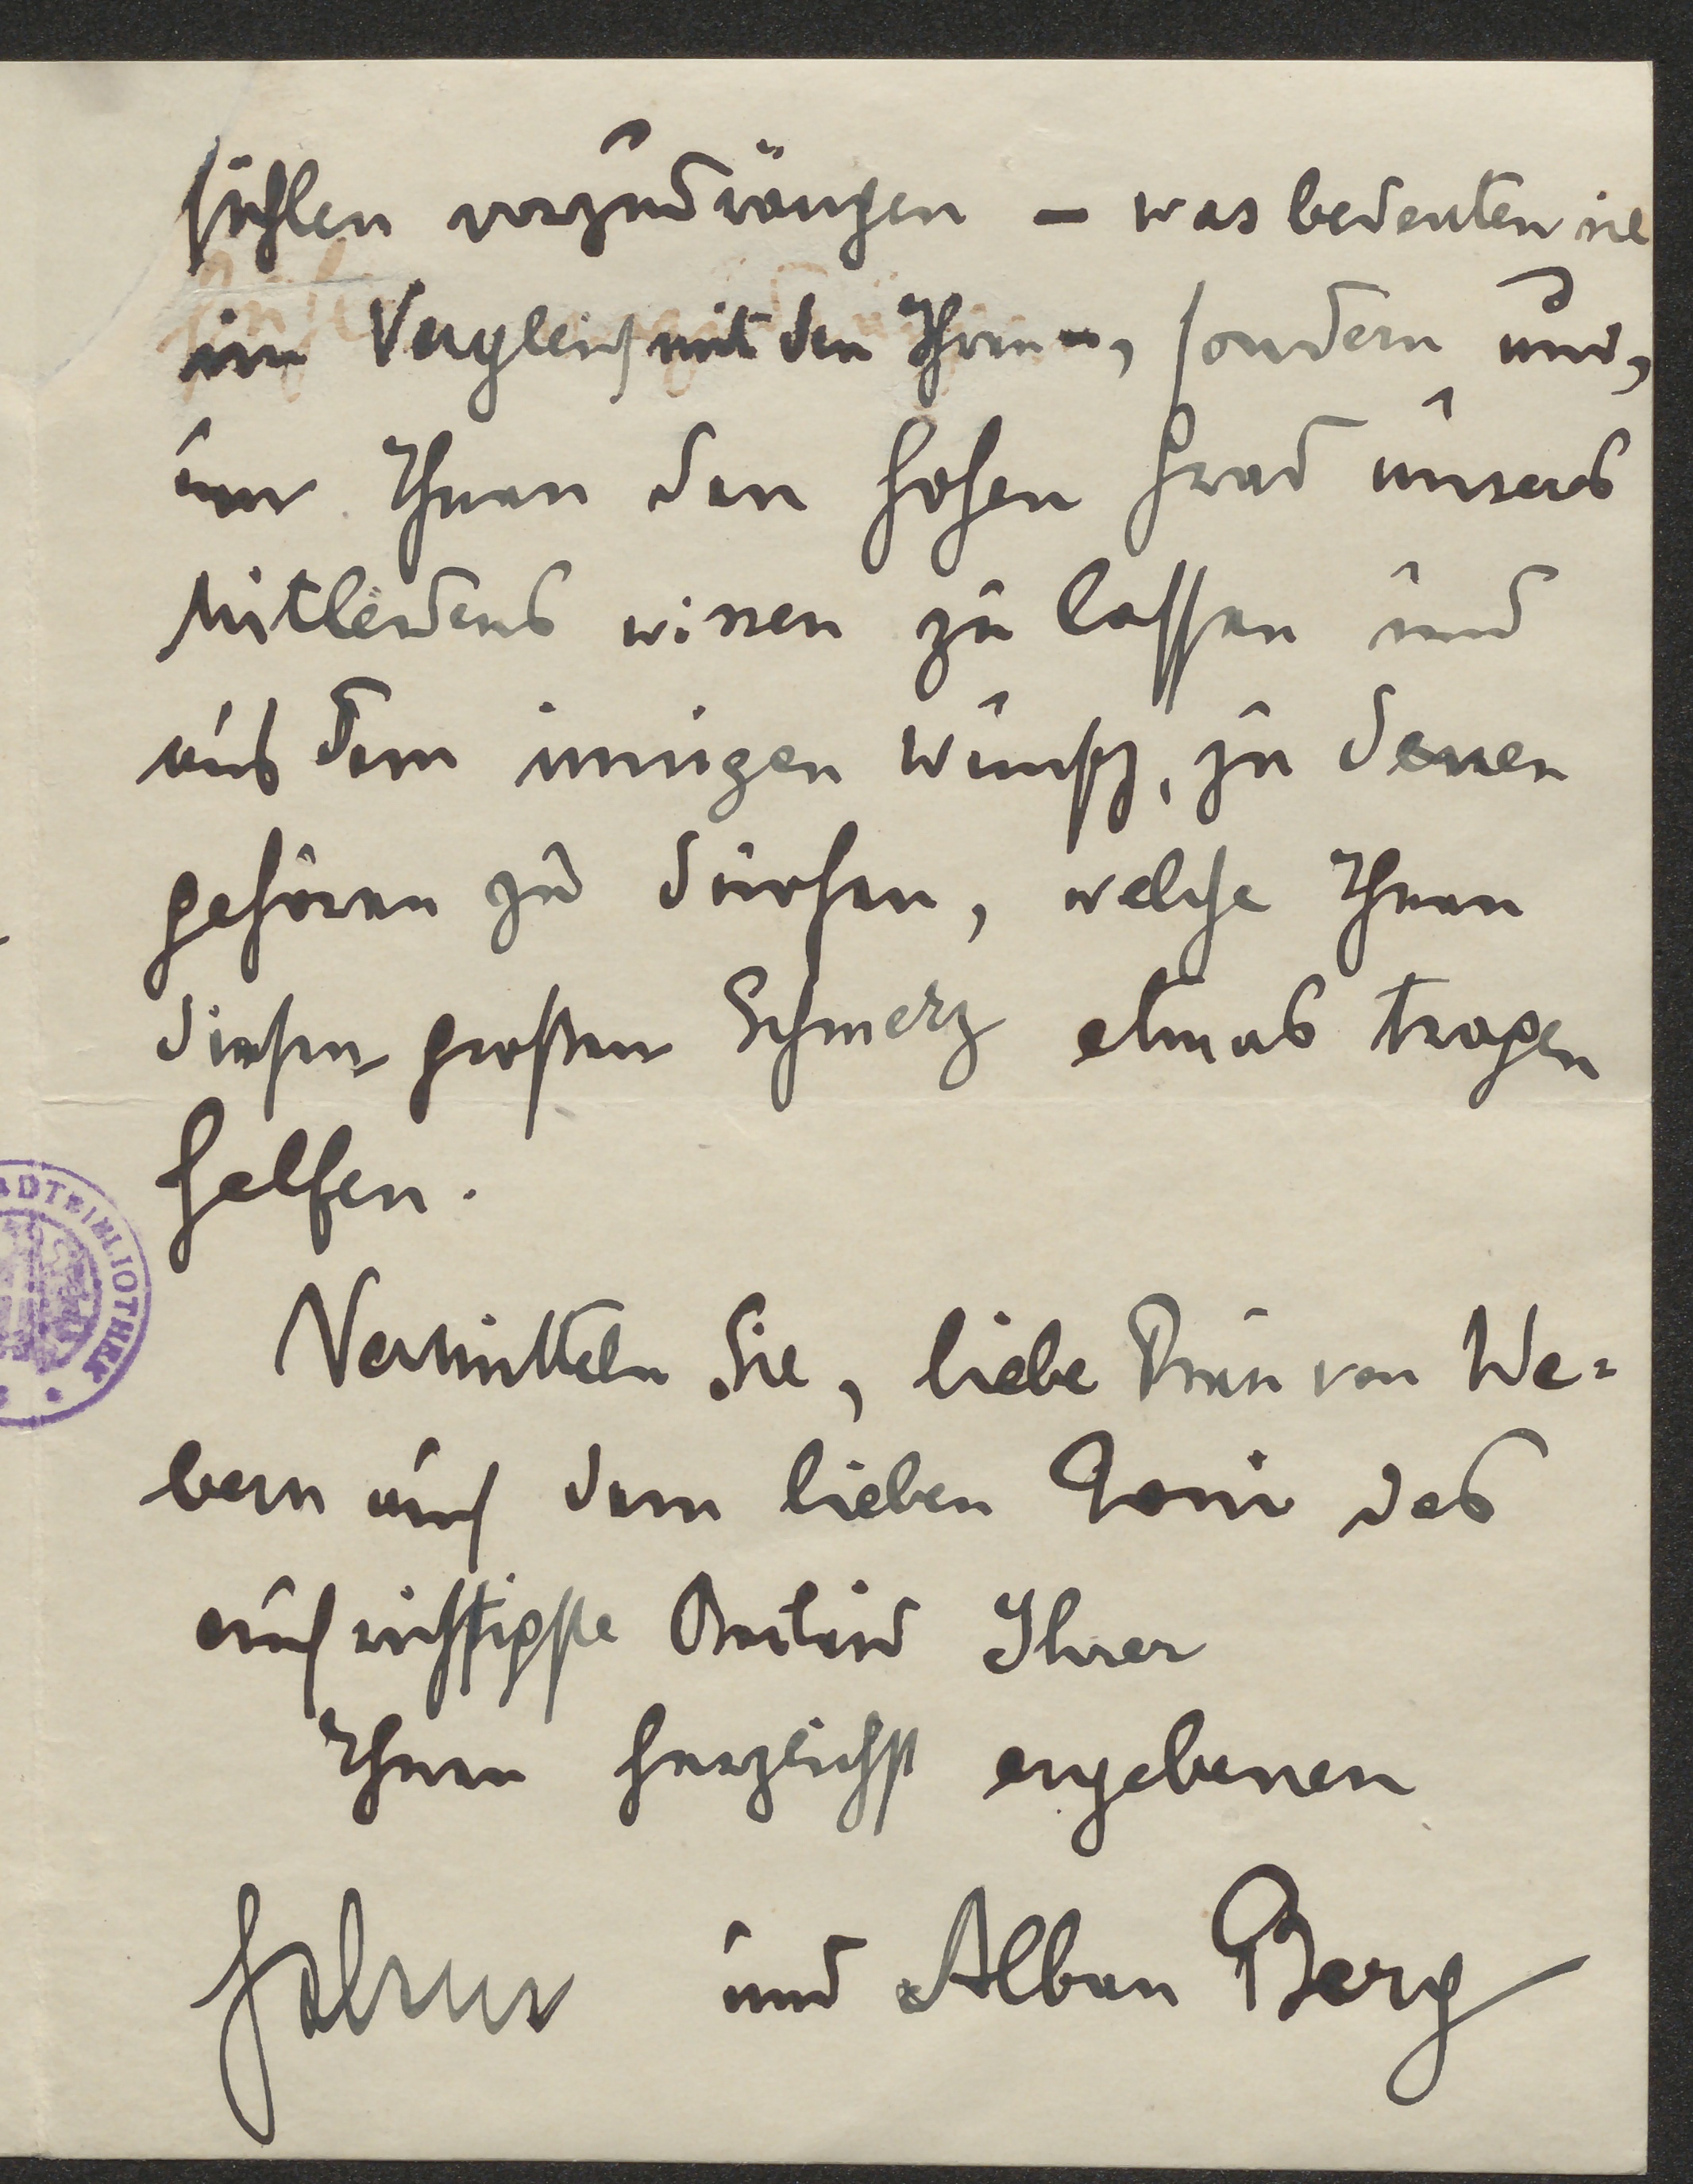 fühlen vorzudrängen – was bedeuten sie
im Vergleich mit den Ihren –, sondern und,
um Ihnen den hohen Grad unseres
Mitleidens wissen zu lassen und
aus dem innigen Wunsch, zu denen
gehören zu dürfen, welche Ihnen
diesen großen Schmerz etwas tragen
helfen.
Vermitteln Sie, liebe Frau von We=
bern auch dem lieben Toni das
aufrichtigste Beileid Ihrer
Ihnen herzlichst ergebenen
Helene und Alban Berg
ADTBIBLIOTHEK